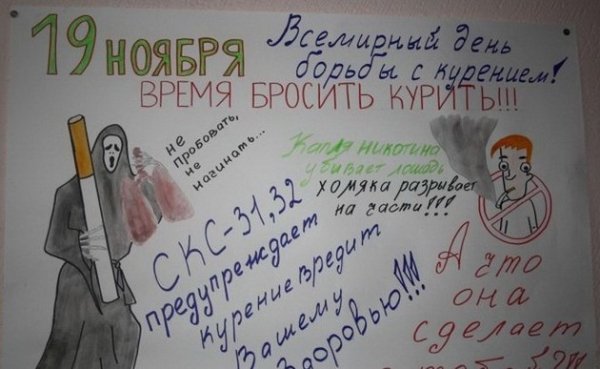 19 НОЯБРЯ
Всемирный день
борьбы с курением!
ВРЕМЯ БРОСИТЬ КУРИТЬ!!!
не
пробовать,
не
начинать...
Капля никотина
убивает лошадь
хомяка разрывает
на части!!!
СКС-31,32
предупреждает
курение вредит
Вашему
Здоровью!!!
А что
она
сделает
с тобой?!!